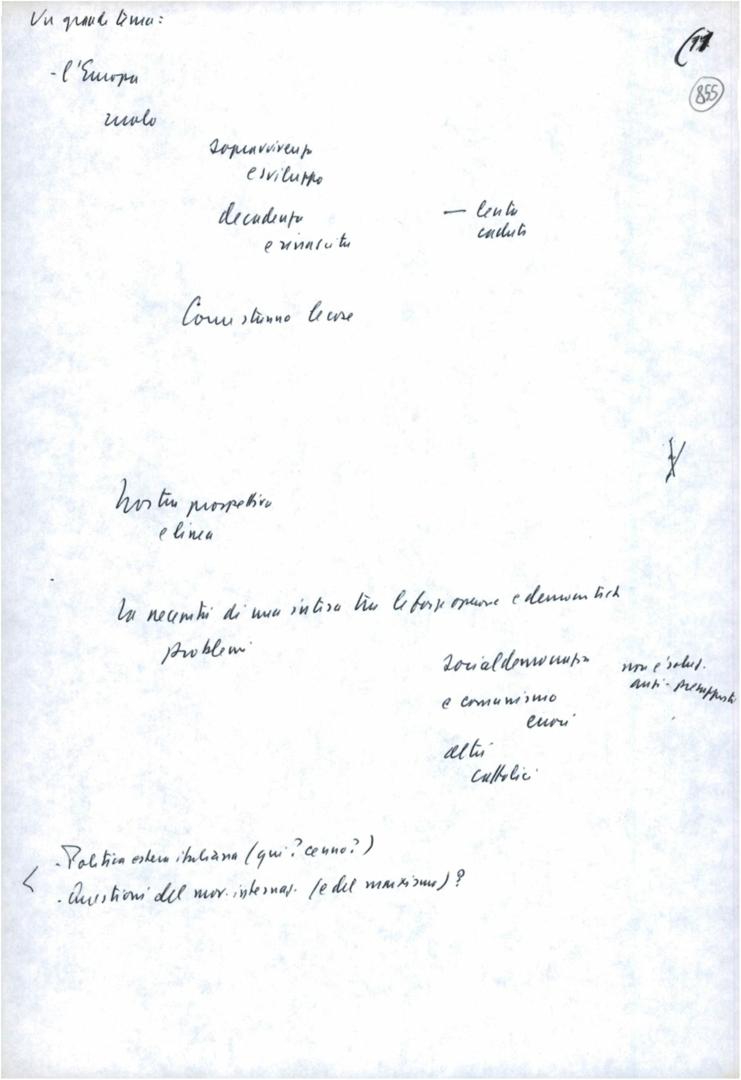 Un grande tema:
(11
855
- l'Europa
ruolo
sopravvivenza
e sviluppo
decadenza — lenta
e rinascita caduta
Come stanno le cose
Nostra prospettiva
e linea
La necessità di una intesa tra le forze operaie e democratiche
problemi
socialdemocrazia non è
e comunismo anti-
errori
altri
cattolici
- Politica estera italiana (qui? cenno?)
- Questioni del mov. internaz. (e del marxismo)?